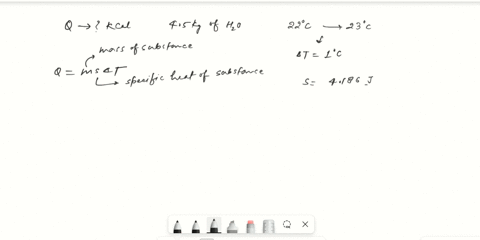 Q → ? kcal 4.5 kg of H₂O 22°C → 23°C
mass of substance
ΔT = 1°C
Q = msΔT
specific heat of substance
S = 4.186 J